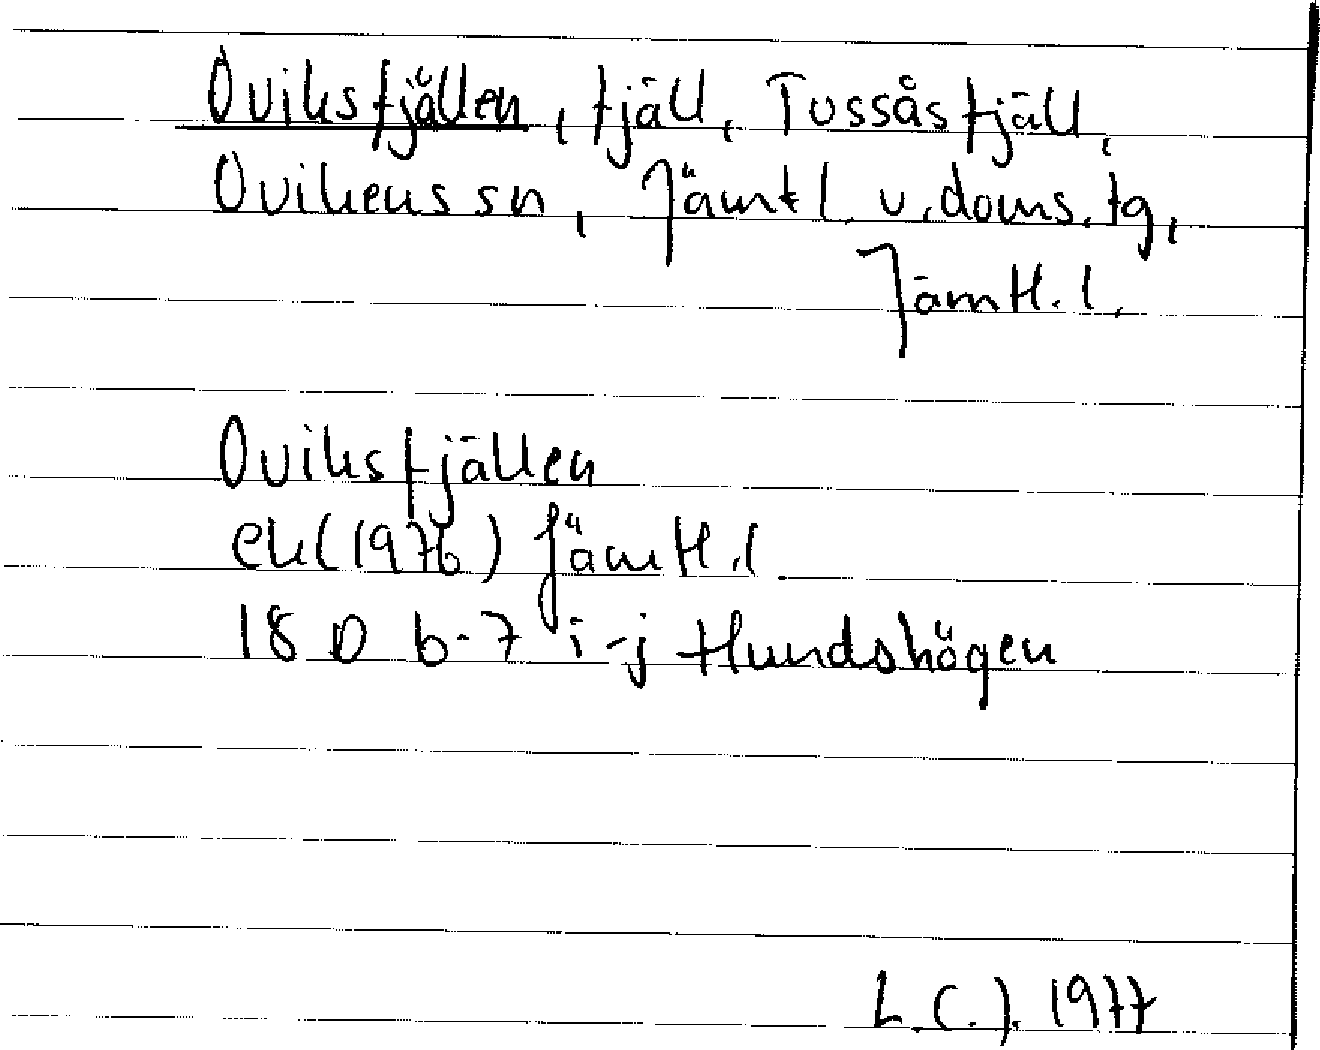 Oviksfjällen, fjäll, Tossåsfjäll,
Ovikens sn, Jämtl. v. doms. tg,
Jämtl. l.
Oviksfjällen
ek (1976) Jämtl. l
18 D 6-7 i-j Hundshögen
L.C.J. 1977